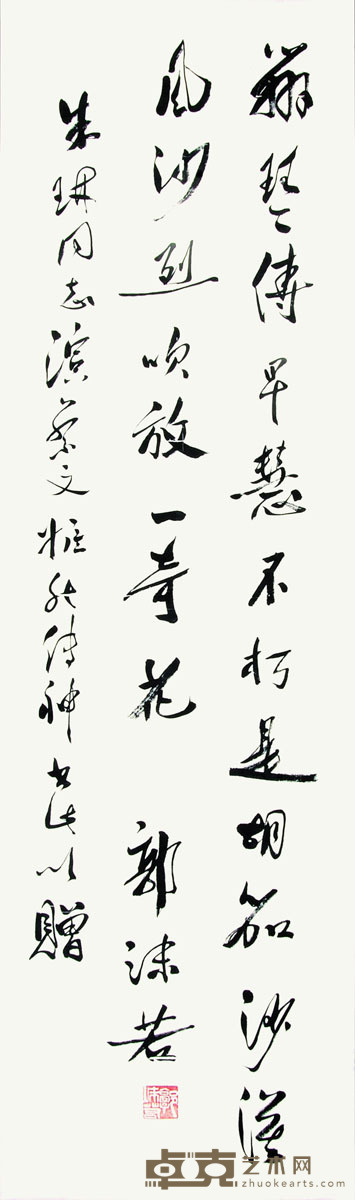 辨琴傳早慧不朽是胡笳沙漠
風沙烈吹放一奇花 郭沫若
朱琳同志演蔡文姬能傳神書此以贈
郭沫若
卓克艺术网
www.zhuokearts.com